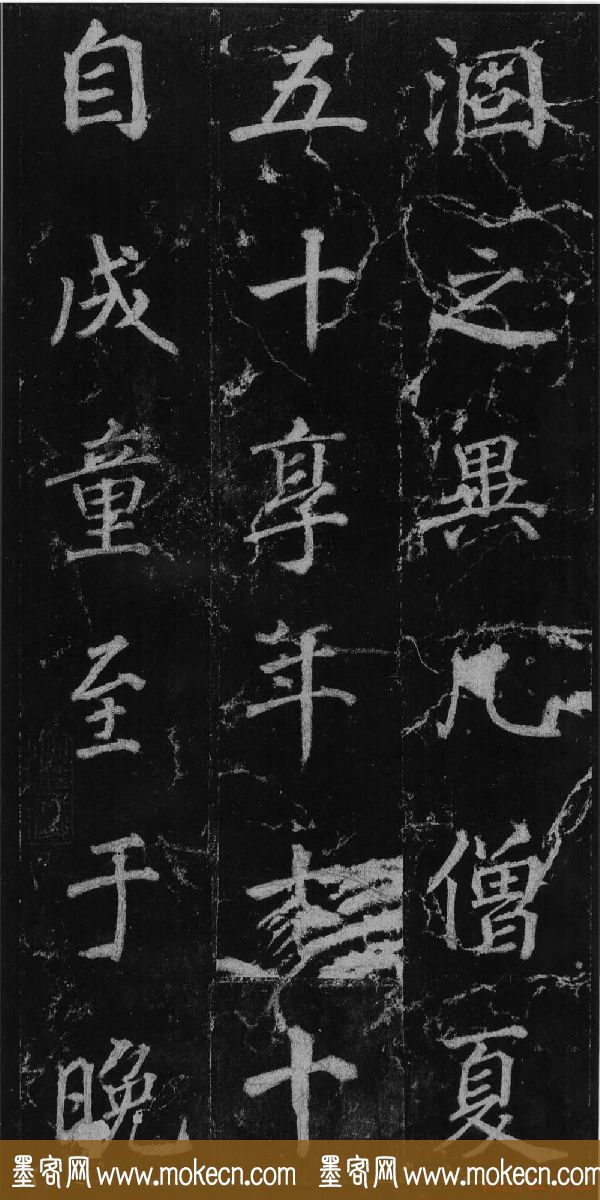 涸之異凡僧夏
五十享年十
自成童至于晚
墨客网 www.mokecn.com 墨客网 www.mokecn.com